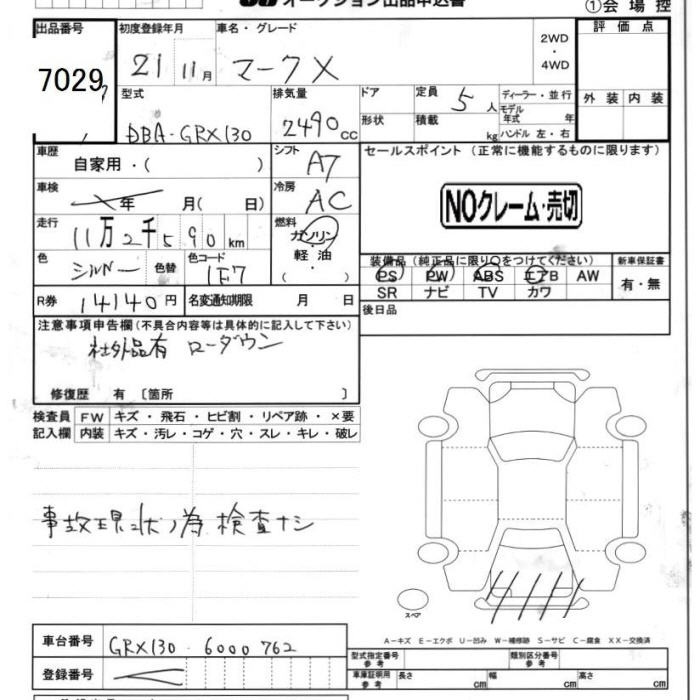 オークション出品申込書
①会場控
出品番号 初度登録年月 車名・グレード 2WD・4WD 評価点
7029 21 11月 マークX
外装 内装
型式 排気量 ドア 定員 5人 ディーラー・並行
モデル年式 年
DBA-GRX130 2490cc 形状 積載 kg ハンドル 左・右
車歴 自家用・( ) シフト A7 セールスポイント (正常に機能するものに限ります)
車検 年 月( 日) 冷房 AC NOクレーム・売切
走行 11万2千590km 燃料 ガソリン・軽油・( )
色 シルバー 色替 色コード 1F7
装備品 (純正品に限り○をつけてください) 新車保証書
PS PW ABS エアB AW 有・無
SR ナビ TV カワ
R券 14140円 名変通知期限 月 日 後日品
注意事項申告欄(不具合内容等は具体的に記入して下さい)
社外品有 ローダウン
修復歴 有 〔箇所 〕
検査員 FW キズ・飛石・ヒビ割・リペア跡・×要
記入欄 内装 キズ・汚レ・コゲ・穴・スレ・キレ・破レ
事故現状ノ為 検査ナシ
スペア
A-キズ E-エクボ U-凹み W-補修跡 S-サビ C-腐食 XX-交換済
車台番号 GRX130-6000762
型式指定番号 参考 類別区分番号 参考
登録番号
車庫証明用 参考 長さ cm 幅 cm 高さ cm